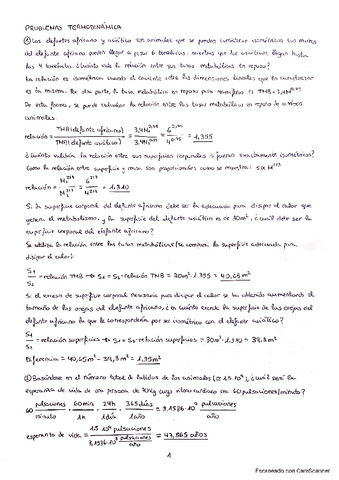 PROBLEMAS TERMODINÁMICA
① Los elefantes africano y asiático son animales que se pueden considerar isométricos. Los machos
del elefante africano pueden llegar a pesar 6 toneladas, mientras que los asiáticos llegan hasta
las 4 toneladas. ¿Cuánto vale la relación entre sus tasas metabólicas en reposo?
La relación es isométrica cuando el cociente entre las dimensiones lineales que los caracterizan
es la misma. Por otra parte, la tasa metabólica en reposo para mamíferos es TMB = 3,4M^0,75
De esta forma, se puede calcular la relación entre las tasas metabólicas en reposo de ambos
animales.
relación = TMB (elefante africano) / TMB (elefante asiático) = 3,4M^0,75 / 3,4M^0,75 = 6^0,75 / 4^0,75 = 1,355
¿Cuánto valdría la relación entre sus superficies corporales si fueran exactamente isométricos?
Como la relación entre superficie y masa son proporcionales como se muestra: S α M^2/3
relación = M₁^2/3 / M₂^2/3 = 6^2/3 / 4^2/3 = 1,310
Si la superficie corporal del elefante africano debe ser la adecuada para disipar el calor que
genera el metabolismo, y la superficie del elefante asiático es de 30m², ¿cuál debe ser la
superficie corporal del elefante africano?
Se utiliza la relación entre las tasas metabólicas (se compara la superficie adecuada para
disipar el calor):
S₁/S₂ = relación TMB → S₁ = S₂ · relación TMB = 30m² · 1,355 = 40,65 m²
Si el exceso de superficie corporal necesaria para disipar el calor se ha obtenido aumentando el
tamaño de las orejas del elefante africano, ¿en cuánto excede la superficie de las orejas del
elefante africano la que le correspondería por ser isométrico con el elefante asiático?
S₁/S₂ = relación superficies → S₁ = S₂ · relación superficies = 30m² · 1,310 = 39,3 m²
Diferencia = 40,65m² - 39,3m² = 1,35m²
② Basándose en el número total de latidos de los animales (≈ 1,5·10⁹), ¿cuál sería la
esperanza de vida de una persona de 70kg cuyo ritmo cardíaco son 60 pulsaciones/minuto?
60 pulsaciones/minuto · 60min/1h · 24h/1día · 365días/1año = 3,1536·10⁷ pulsaciones/año
esperanza de vida = 1,5·10⁹ pulsaciones / 3,1536·10⁷ pulsaciones/año = 47,565 años
1
Escaneado con CamScanner